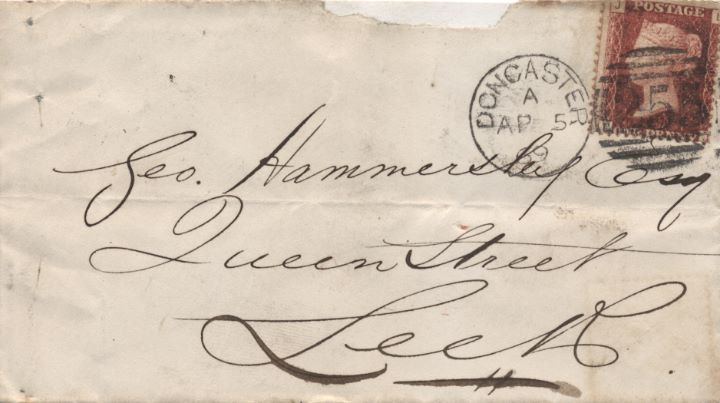 J POSTAGE
DONCASTER
A
AP 5
Geo. Hammersley Esq
Queen Street
Leek.